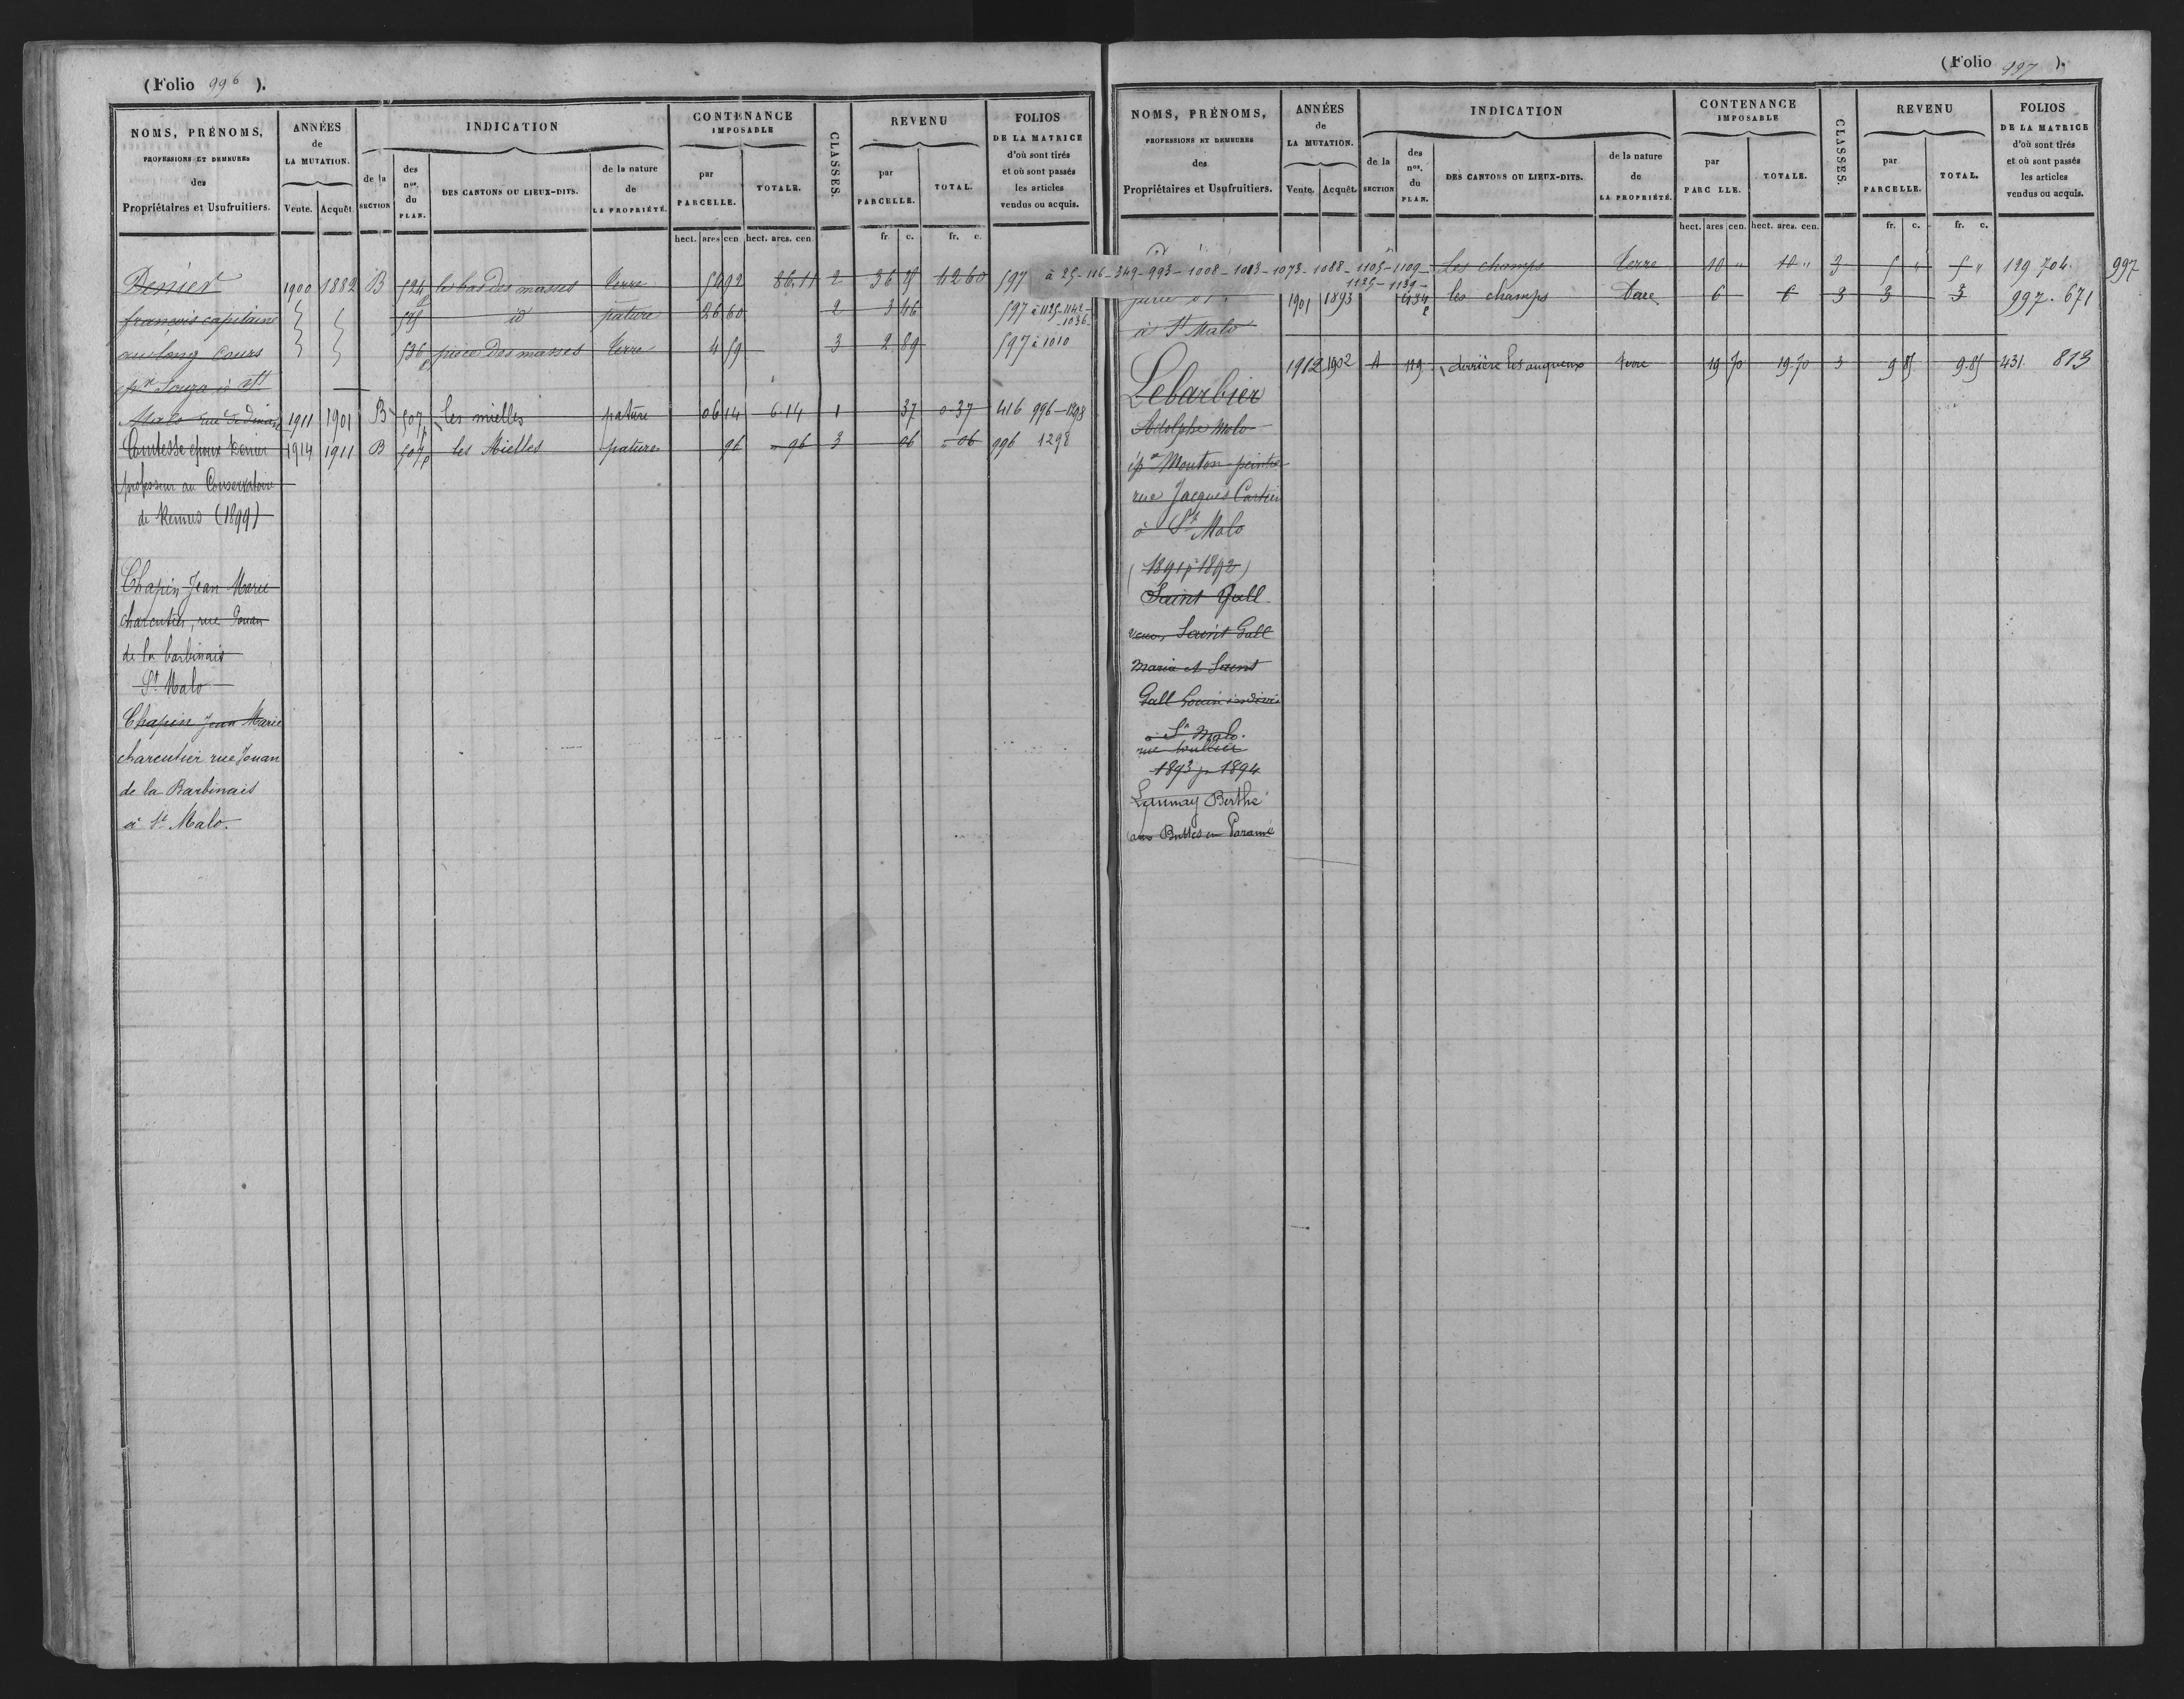 (Folio 996 ).
NOMS, PRÉNOMS,
PROFESSIONS ET DEMEURES
des
Propriétaires et Usufruitiers.
ANNÉES
de
LA MUTATION.
Vente. Acquêt.
INDICATION
de la
SECTION
des
nos.
du
PLAN.
DES CANTONS OU LIEUX-DITS.
de la nature
de
LA PROPRIÉTÉ.
CONTENANCE
IMPOSABLE
par
PARCELLE.
TOTALE.
hect. ares cen hect. ares. cen
CLASSES.
REVENU
par
PARCELLE.
TOTAL.
fr. c. fr. c.
FOLIOS
DE LA MATRICE
d'où sont tirés
et où sont passés
les articles
vendus ou acquis.
Denier 1900 1882 B 524 p les bas des masses terre 54 92 86.11 2 36 25 42 60 597 à 25-116-349-993-1008-1013-1073-1088-1105-1109-
1125-1139-
françois capitaine 525 id pature 26 60 2 3 46 597 à 1125-1142-
-1036-
au long cours 536 p pièce des masses terre 4 59 3 2 89 597 à 1010
à St
Malo rue de dinan 1911 1901 B 507 Les mielles pature 06 14 6.14 1 37 0.37 416 996-1298
Comtesse époux Denier 1914 1911 B 507p les Mielles pature 96 " 96 3 06 " 06 996 1298
professeur au Conservatoire
de Rennes (1899)
Chapin Jean Marie
charcutier, rue Jouan
de la barbinais
St Malo
Chapin Jean Marie
charcutier rue Jouan
de la Barbinais
à St Malo.
(Folio 997 ).
NOMS, PRÉNOMS,
PROFESSIONS ET DEMEURES
des
Propriétaires et Usufruitiers.
ANNÉES
de
LA MUTATION.
Vente. Acquêt.
INDICATION
de la
SECTION
des
nos.
du
PLAN.
DES CANTONS OU LIEUX-DITS.
de la nature
de
LA PROPRIÉTÉ.
CONTENANCE
IMPOSABLE
par
PARC LLE.
TOTALE.
hect. ares cen. hect. ares. cen.
CLASSES.
REVENU
par
PARCELLE.
TOTAL.
fr. c. fr. c.
FOLIOS
DE LA MATRICE
d'où sont tirés
et où sont passés
les articles
vendus ou acquis.
Les champs terre 10 " 10 " 3 5 " 5 " 129 704. 997
1901 1893 434 p les champs terre 6 6 3 3 3 997. 671
à St Malo
1912 1902 A 119 derrière les terre 19 70 19.70 3 9 85 9.85 431. 813
Lebarbier
Adolphe Malo
ép. Mouton peintre
rue Jacques Cartier
à St Malo
(1891 pr 1892)
Saint Gall
Saint Gall
Maria et Saint
Gall Louis indivis
à St Malo.
rue
1893 pr 1894
Launay Berthe
aux Buttes en Paramé